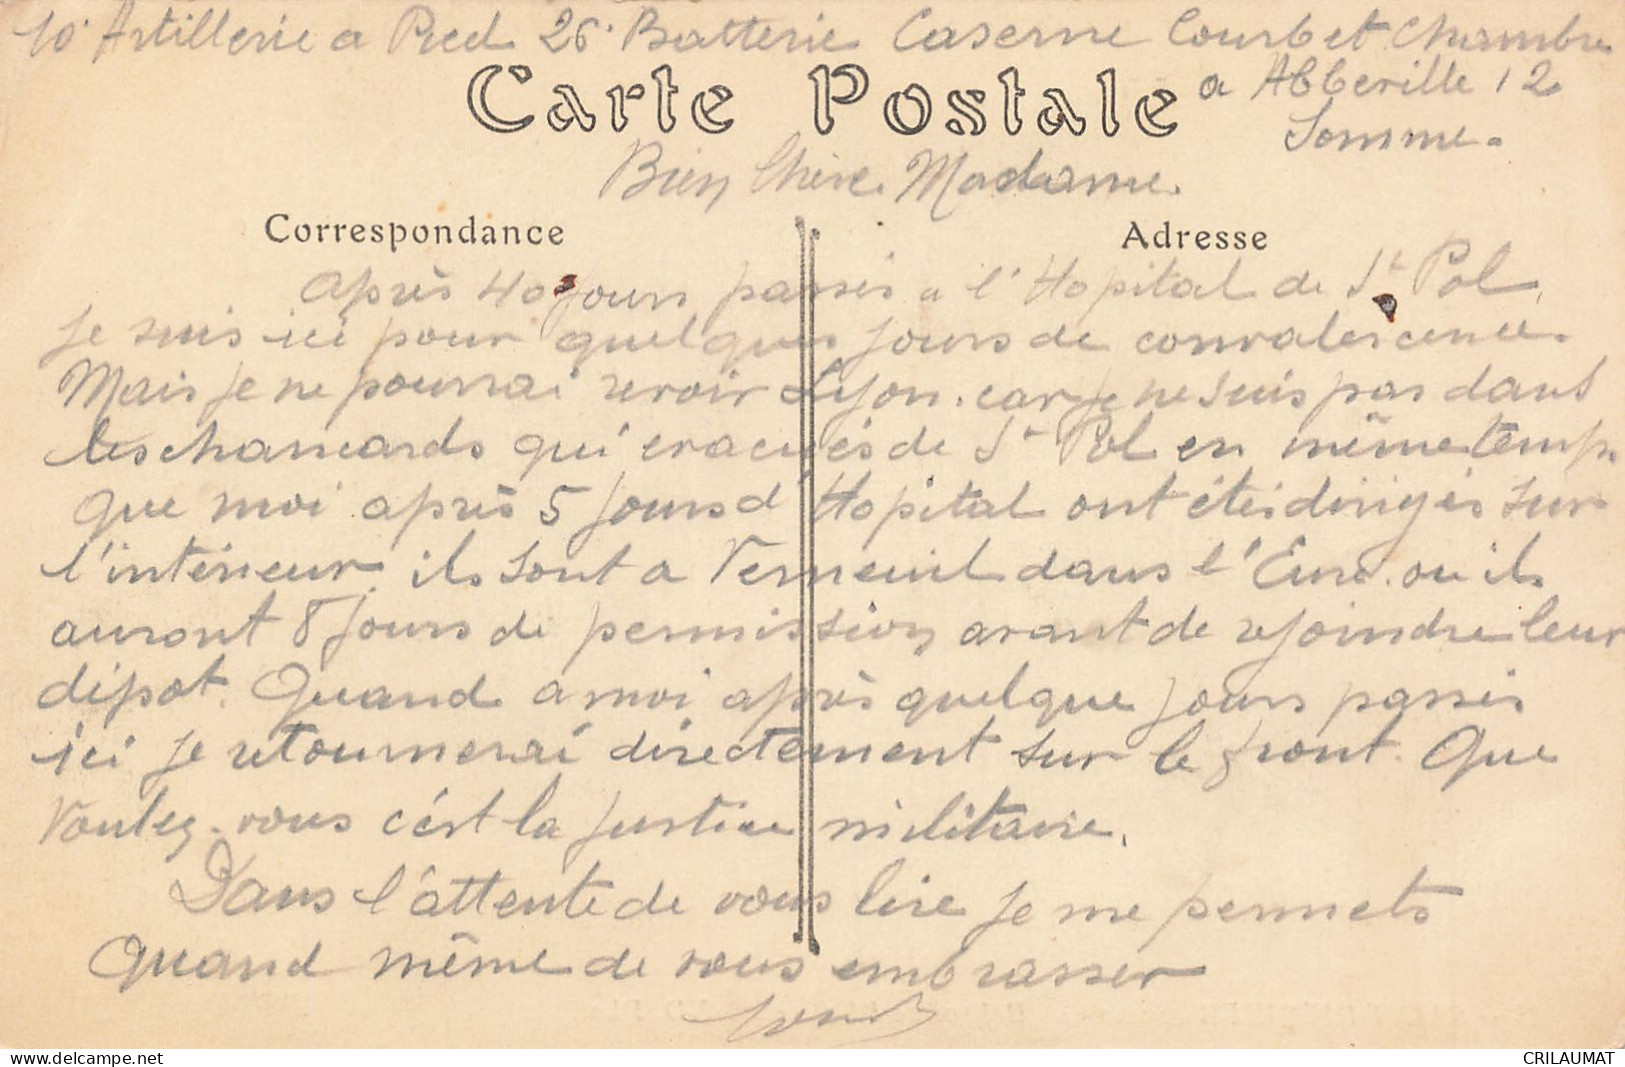 10° Artillerie a Pied 26° Batterie Caserne Courbet Chambre
a Abbeville 12
Somme.
Carte Postale
Bien Chère Madame.
Correspondance
Adresse
Après 40 jours passés a l'Hopital de St Pol,
je suis ici pour quelques jours de convalescence.
Mais je ne pourrai revoir Lyon. car je ne suis pas dans
les chancards qui évacués de St Pol en même temps
que moi après 5 jours d'Hopital ont étés dirigés sur
l'intérieur, ils sont a Verneuil dans l'Eure. ou ils
auront 8 jours de permission avant de rejoindre leur
dépot. Quand a moi après quelque jours passés
ici je retournerai directement sur le front. Que
voulez-vous c'est la justice militaire.
Dans l'attente de vous lire je me permets
Quand même de vous embrasser
CRILAUMAT
www.delcampe.net